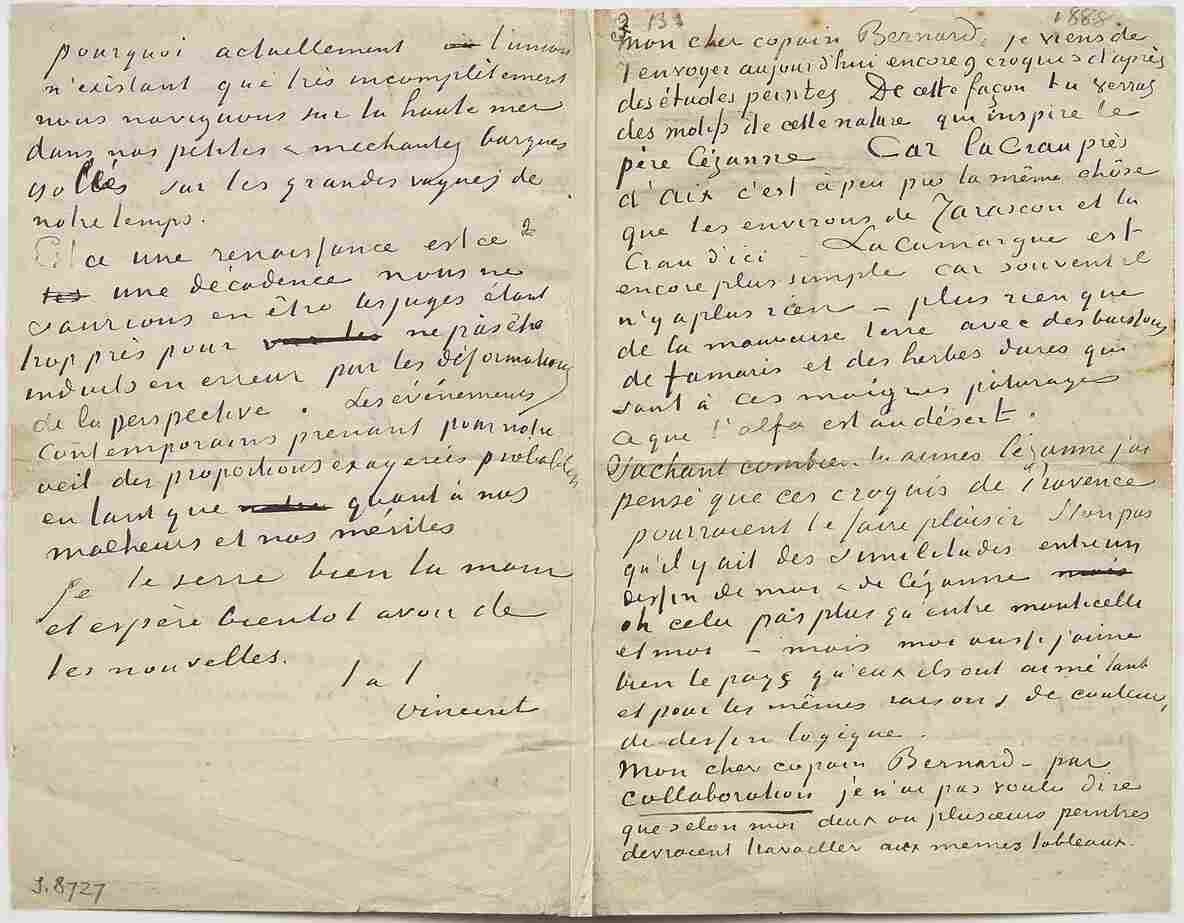 pourquoi actuellement l'union
n'existant que très incomplètement
nous naviguons sur la haute mer
dans nos petites & mechantes barques
isolés sur les grandes vagues de
notre temps.
Est ce une renaissance est ce
une décadence nous ne
saurions en être les juges étant
trop près pour ne pas être
induits en erreur par les déformations
de la perspective. Les événements
contemporains prenant pour notre
œil des proportions exagerées probablem
en tant que quant à nos
malheurs et nos mérites
Je te serre bien la main
et espère bientot avoir de
tes nouvelles.
t. à t.
Vincent
J. 8727
2
133
1888
Mon cher copain Bernard, je viens de
t'envoyer aujourd'hui encore 9 croquis d'après
des études peintes De cette façon tu verras
des motifs de cette nature qui inspire le
père Cézanne Car la Crau près
d'Aix c'est à peu près la même chôse
que les environs de Tarascon et la
Crau d'ici – La Camargue est
encore plus simple car souvent il
n'y a plus rien – plus rien que
de la mauvaise terre avec des buissons
de tamaris et des herbes dures qui
sont à ces maigres pâturages
ce que l'alfa est au désert.
Sachant combien tu aimes Cézanne j'ai
pensé que ces croquis de Provence
pourraient te faire plaisir Non pas
qu'il y ait des similitudes entre un
dessin de moi & de Cézanne
oh cela pas plus qu'entre Monticelli
et moi – mais moi aussi j'aime
bien le pays qu'eux ils ont aimé tant
et pour les mêmes raisons de couleur,
de dessin logique.
Mon cher copain Bernard – par
collaboration je n'ai pas voulu dire
que selon moi deux ou plusieurs peintres
devraient travailler aux memes tableaux.